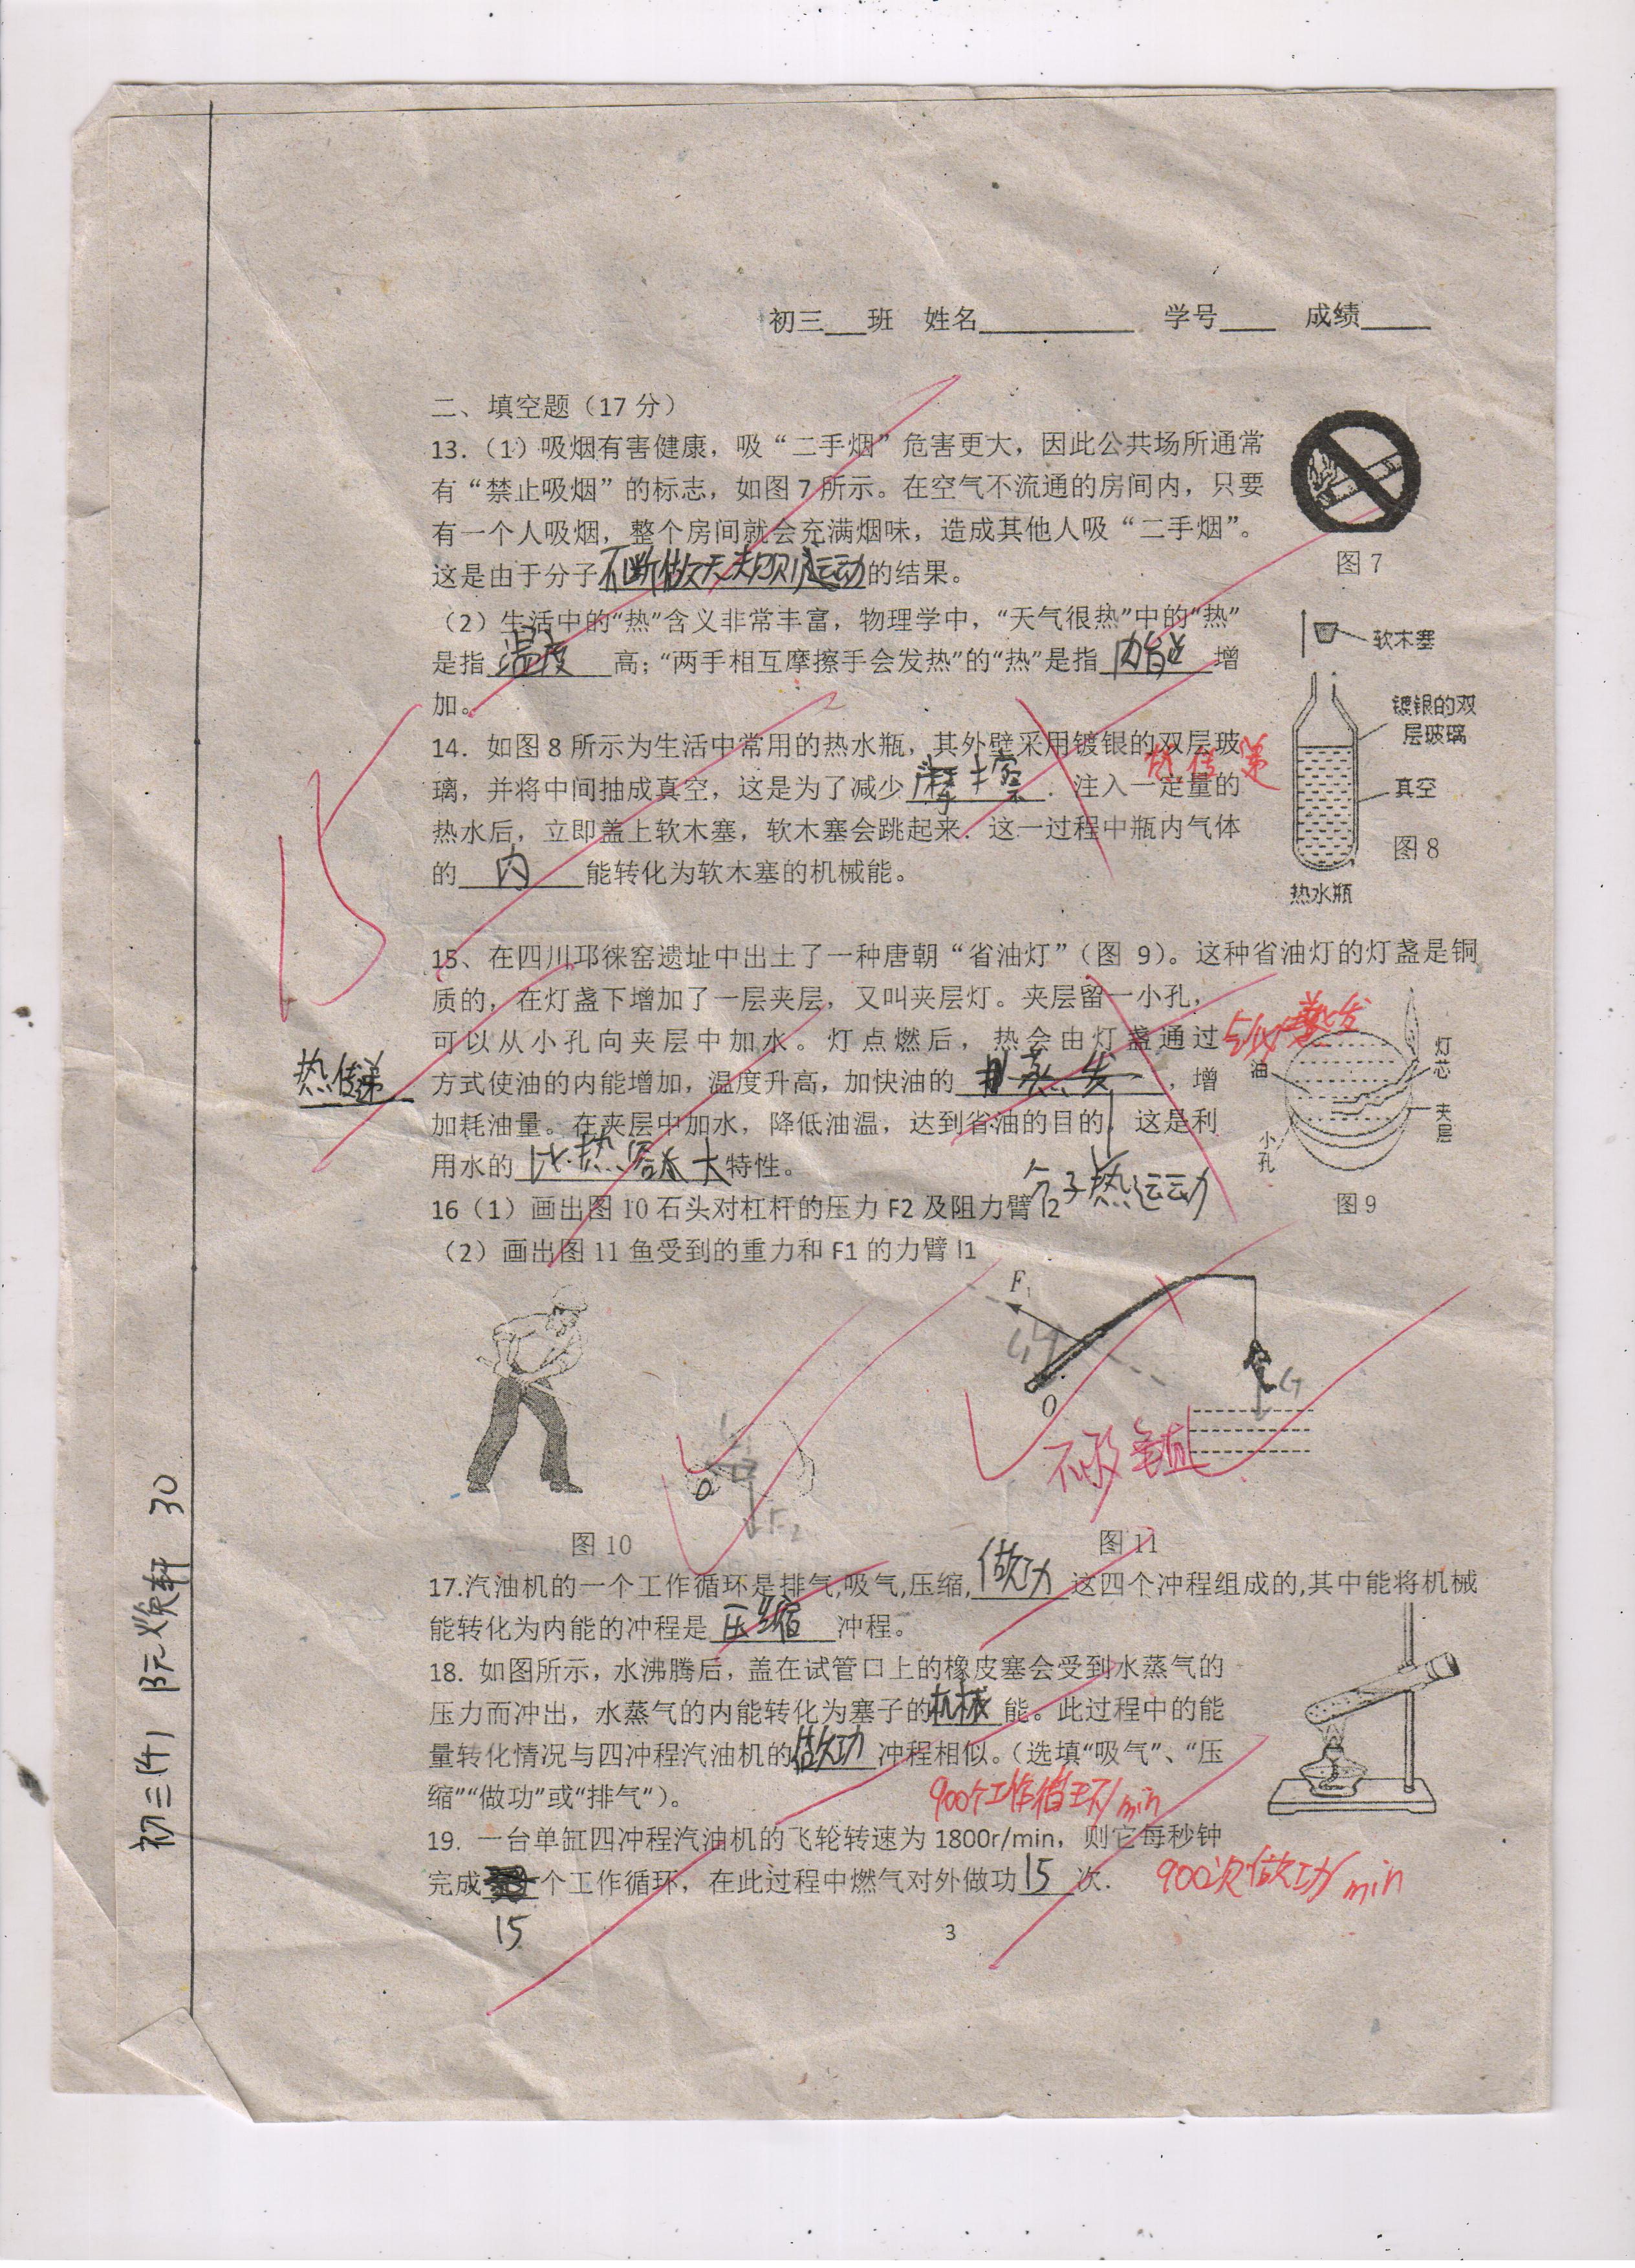 初三___班 姓名___________ 学号____ 成绩_____
二、填空题（17 分）
13.（1）吸烟有害健康，吸“二手烟”危害更大，因此公共场所通常
有“禁止吸烟”的标志，如图 7 所示。在空气不流通的房间内，只要
有一个人吸烟，整个房间就会充满烟味，造成其他人吸“二手烟”。
这是由于分子不断做无规则运动的结果。
图 7
（2）生活中的“热”含义非常丰富，物理学中，“天气很热”中的“热”
是指 温度 高；“两手相互摩擦手会发热”的“热”是指 内能 增
加。
软木塞
镀银的双
层玻璃
真空
图 8
热水瓶
14. 如图 8 所示为生活中常用的热水瓶，其外壁采用镀银的双层玻
热传递
璃，并将中间抽成真空，这是为了减少 摩擦 . 注入一定量的
热水后，立即盖上软木塞，软木塞会跳起来. 这一过程中瓶内气体
的 内 能转化为软木塞的机械能。
15
15、在四川邛徕窑遗址中出土了一种唐朝“省油灯”（图 9）。这种省油灯的灯盏是铜
质的，在灯盏下增加了一层夹层，又叫夹层灯。夹层留一小孔，
可以从小孔向夹层中加水。灯点燃后，热会由灯盏通过
热传递
方式使油的内能增加，温度升高，加快油的 蒸发 ，增
加耗油量。在夹层中加水，降低油温，达到省油的目的，这是利
用水的 比热容大 特性。
分子热运动
油
灯芯
夹层
小孔
图 9
16（1）画出图 10 石头对杠杆的压力 F2 及阻力臂 l2
（2）画出图 11 鱼受到的重力和 F1 的力臂 l1
F₁
O
G
不够垂直
O
F₂
图 10
图 11
17.汽油机的一个工作循环是排气,吸气,压缩,做功这四个冲程组成的,其中能将机械
能转化为内能的冲程是 压缩 冲程。
18. 如图所示，水沸腾后，盖在试管口上的橡皮塞会受到水蒸气的
压力而冲出，水蒸气的内能转化为塞子的机械 能。此过程中的能
量转化情况与四冲程汽油机的做功 冲程相似。（选填“吸气”、“压
缩”“做功”或“排气”）。
900个工作循环/min
19. 一台单缸四冲程汽油机的飞轮转速为 1800r/min，则它每秒钟
完成 个工作循环，在此过程中燃气对外做功 15 次.
900次做功/min
15
3
初三(4) 阮焕轩 30